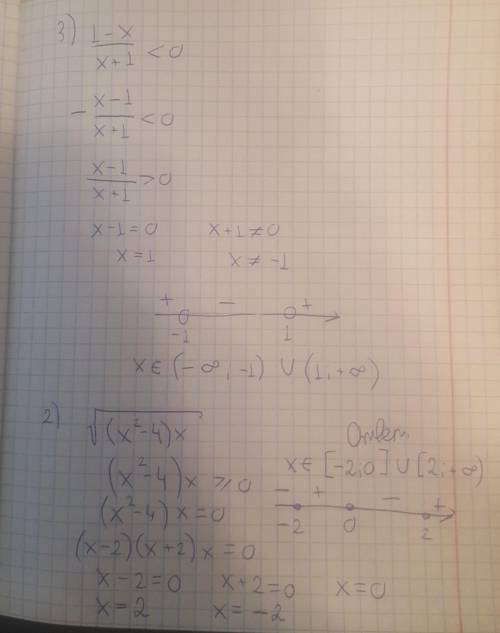 3) (1-x)/(x+1) < 0
- (x-1)/(x+1) < 0
(x-1)/(x+1) > 0
x-1=0 x+1≠0
x=1 x≠-1
+ - +
-1 1
x∈(-∞,-1) ∪ (1,+∞)
2) √((x²-4)x)
Ответ
(x²-4)x ≥ 0
x∈[-2,0] ∪ [2,+∞)
(x²-4)x=0
- + - +
-2 0 2
(x-2)(x+2)x=0
x-2=0 x+2=0 x=0
x=2 x=-2